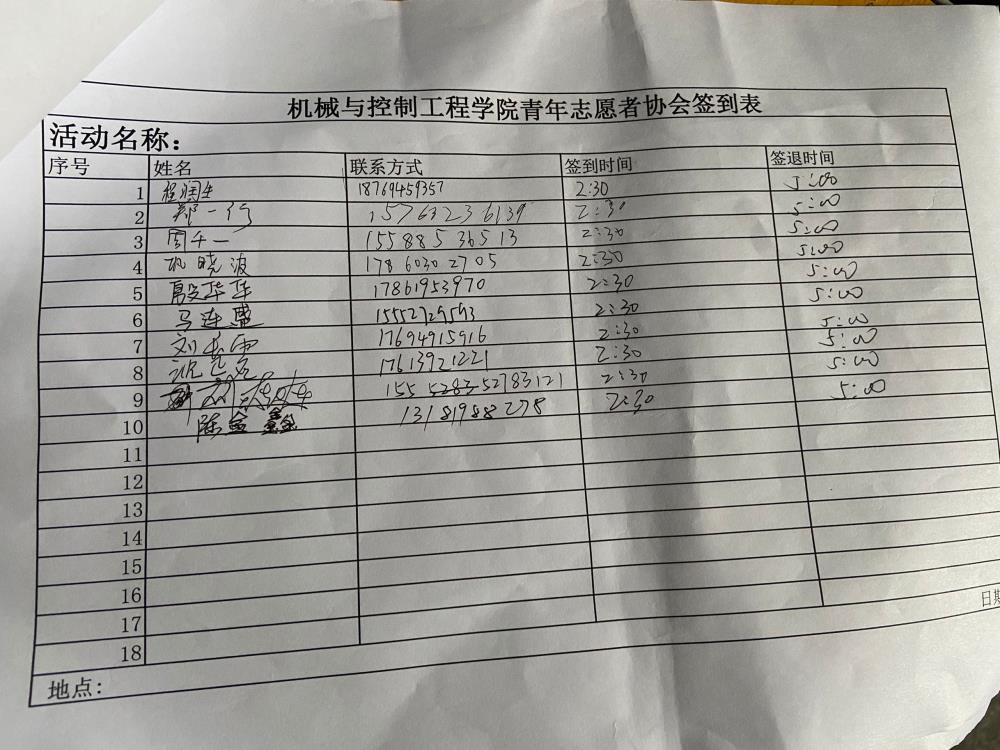 机械与控制工程学院青年志愿者协会签到表
活动名称：
序号 姓名 联系方式 签到时间 签退时间
1 程润生 18769459357 2:30 5:00
2 郑一行 15763236139 2:30 5:00
3 周千一 15588536513 2:30 5:00
4 巩晓波 17860302705 2:30 5:00
5 殷华华 17861953970 2:30 5:00
6 马连盛 15552729593 2:30 5:00
7 17694915916 2:30 5:00
8 17613921221 2:30 5:00
9 2:30 5:00
10 陈金鑫 13181988278 2:30 5:00
11
12
13
14
15
16
17
18
地点： 日期